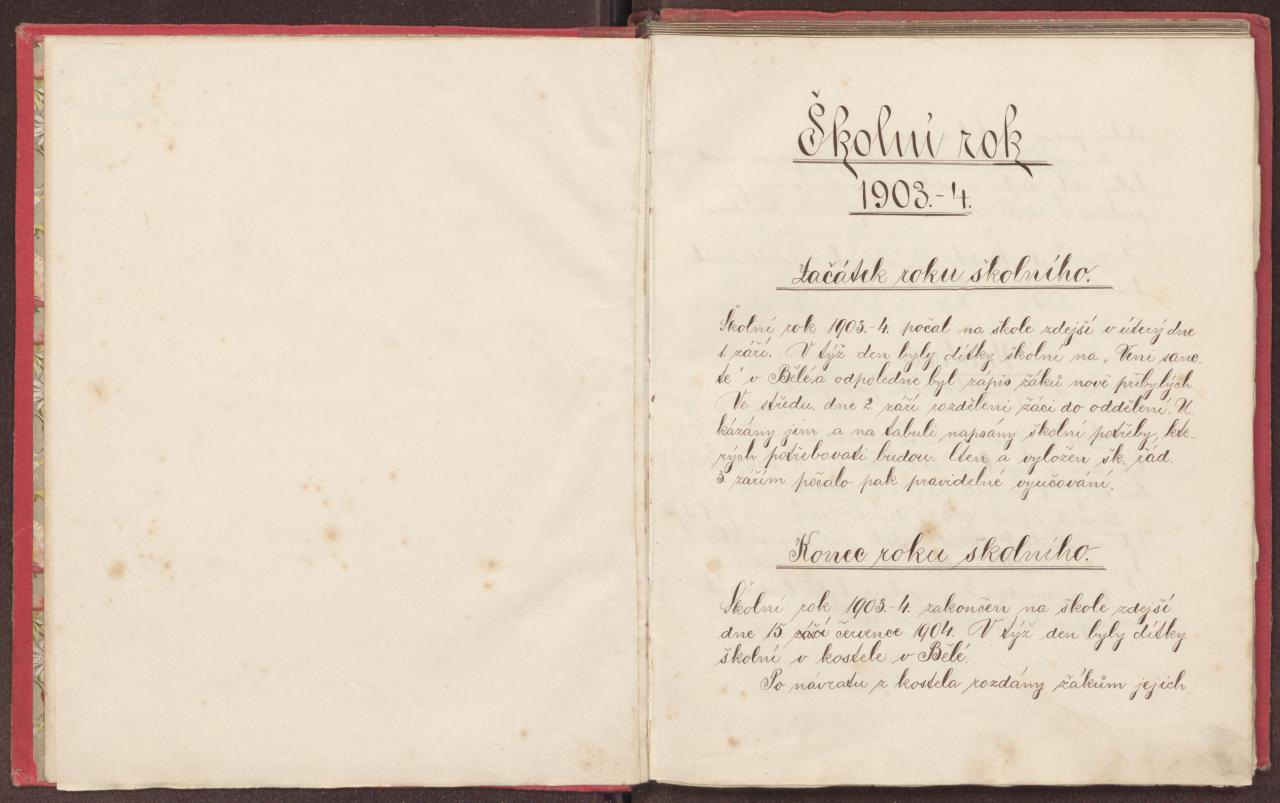 Školní rok
1903.-4.
Začátek roku školního.
Školní rok 1903.-4. počal na škole zdejší v úterý dne
1. září. V týž den byly dítky školní na „Veni sanc-
te" v Bělé a odpoledne byl zápis žáků nově přibylých.
Ve středu, dne 2. září rozděleni žáci do oddělení. U-
kázány jim a na tabuli napsány školní potřeby, kte-
rých potřebovati budou. Čten a vyložen šk. řád.
3. zářím počalo pak pravidelné vyučování.
Konec roku školního.
Školní rok 1903.-4. zakončen na škole zdejší
dne 15. září července 1904. V týž den byly dítky
školní v kostele v Bělé.
Po návratu z kostela rozdány žákům jejich